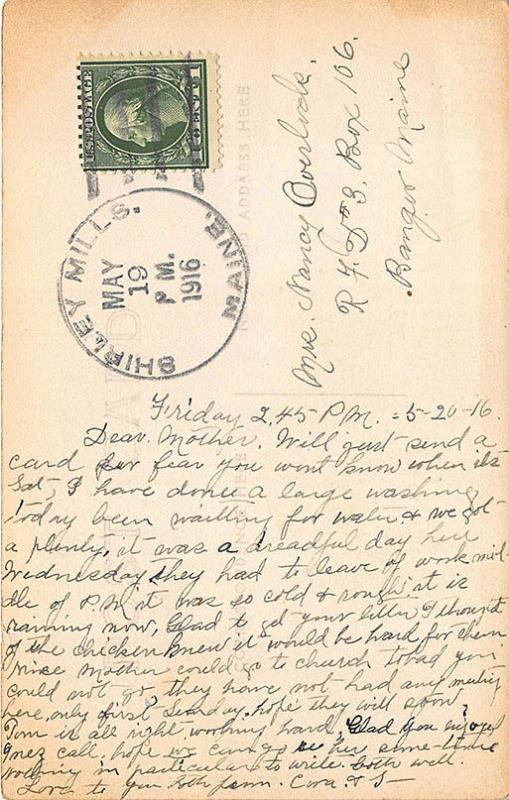 U.S. POSTAGE
1 CENT 1
SHIRLEY MILLS.
MAINE.
MAY
19
P M.
1916
NAME AND ADDRESS HERE
Mrs. Nancy Overlock.
R. F. D # 3. Box 106.
Bangor Maine
Friday 2,45 P.M. 5-20-16.
Dear Mother. Will just send a
card for fear you wont know when its
Sat, I have done a large washing
today been waitting for water & we got
a plenty, it was a dreadful day here
Wednesday they had to leave of work mid-
dle of P.M it was so cold & rough it is
raining now, Glad to get your letter I thought
of the chicken knew it would be hard for them
nice Mother could go to church to bad you
could not go, they have not had any meeting
here, only first Sunday. hope they will soon,
Tom is all right working hard, Glad you enjoyed
Inez call. hope we can go see her some-time
nothing in particular to write. both well.
Love to you both from. Cora. & T—